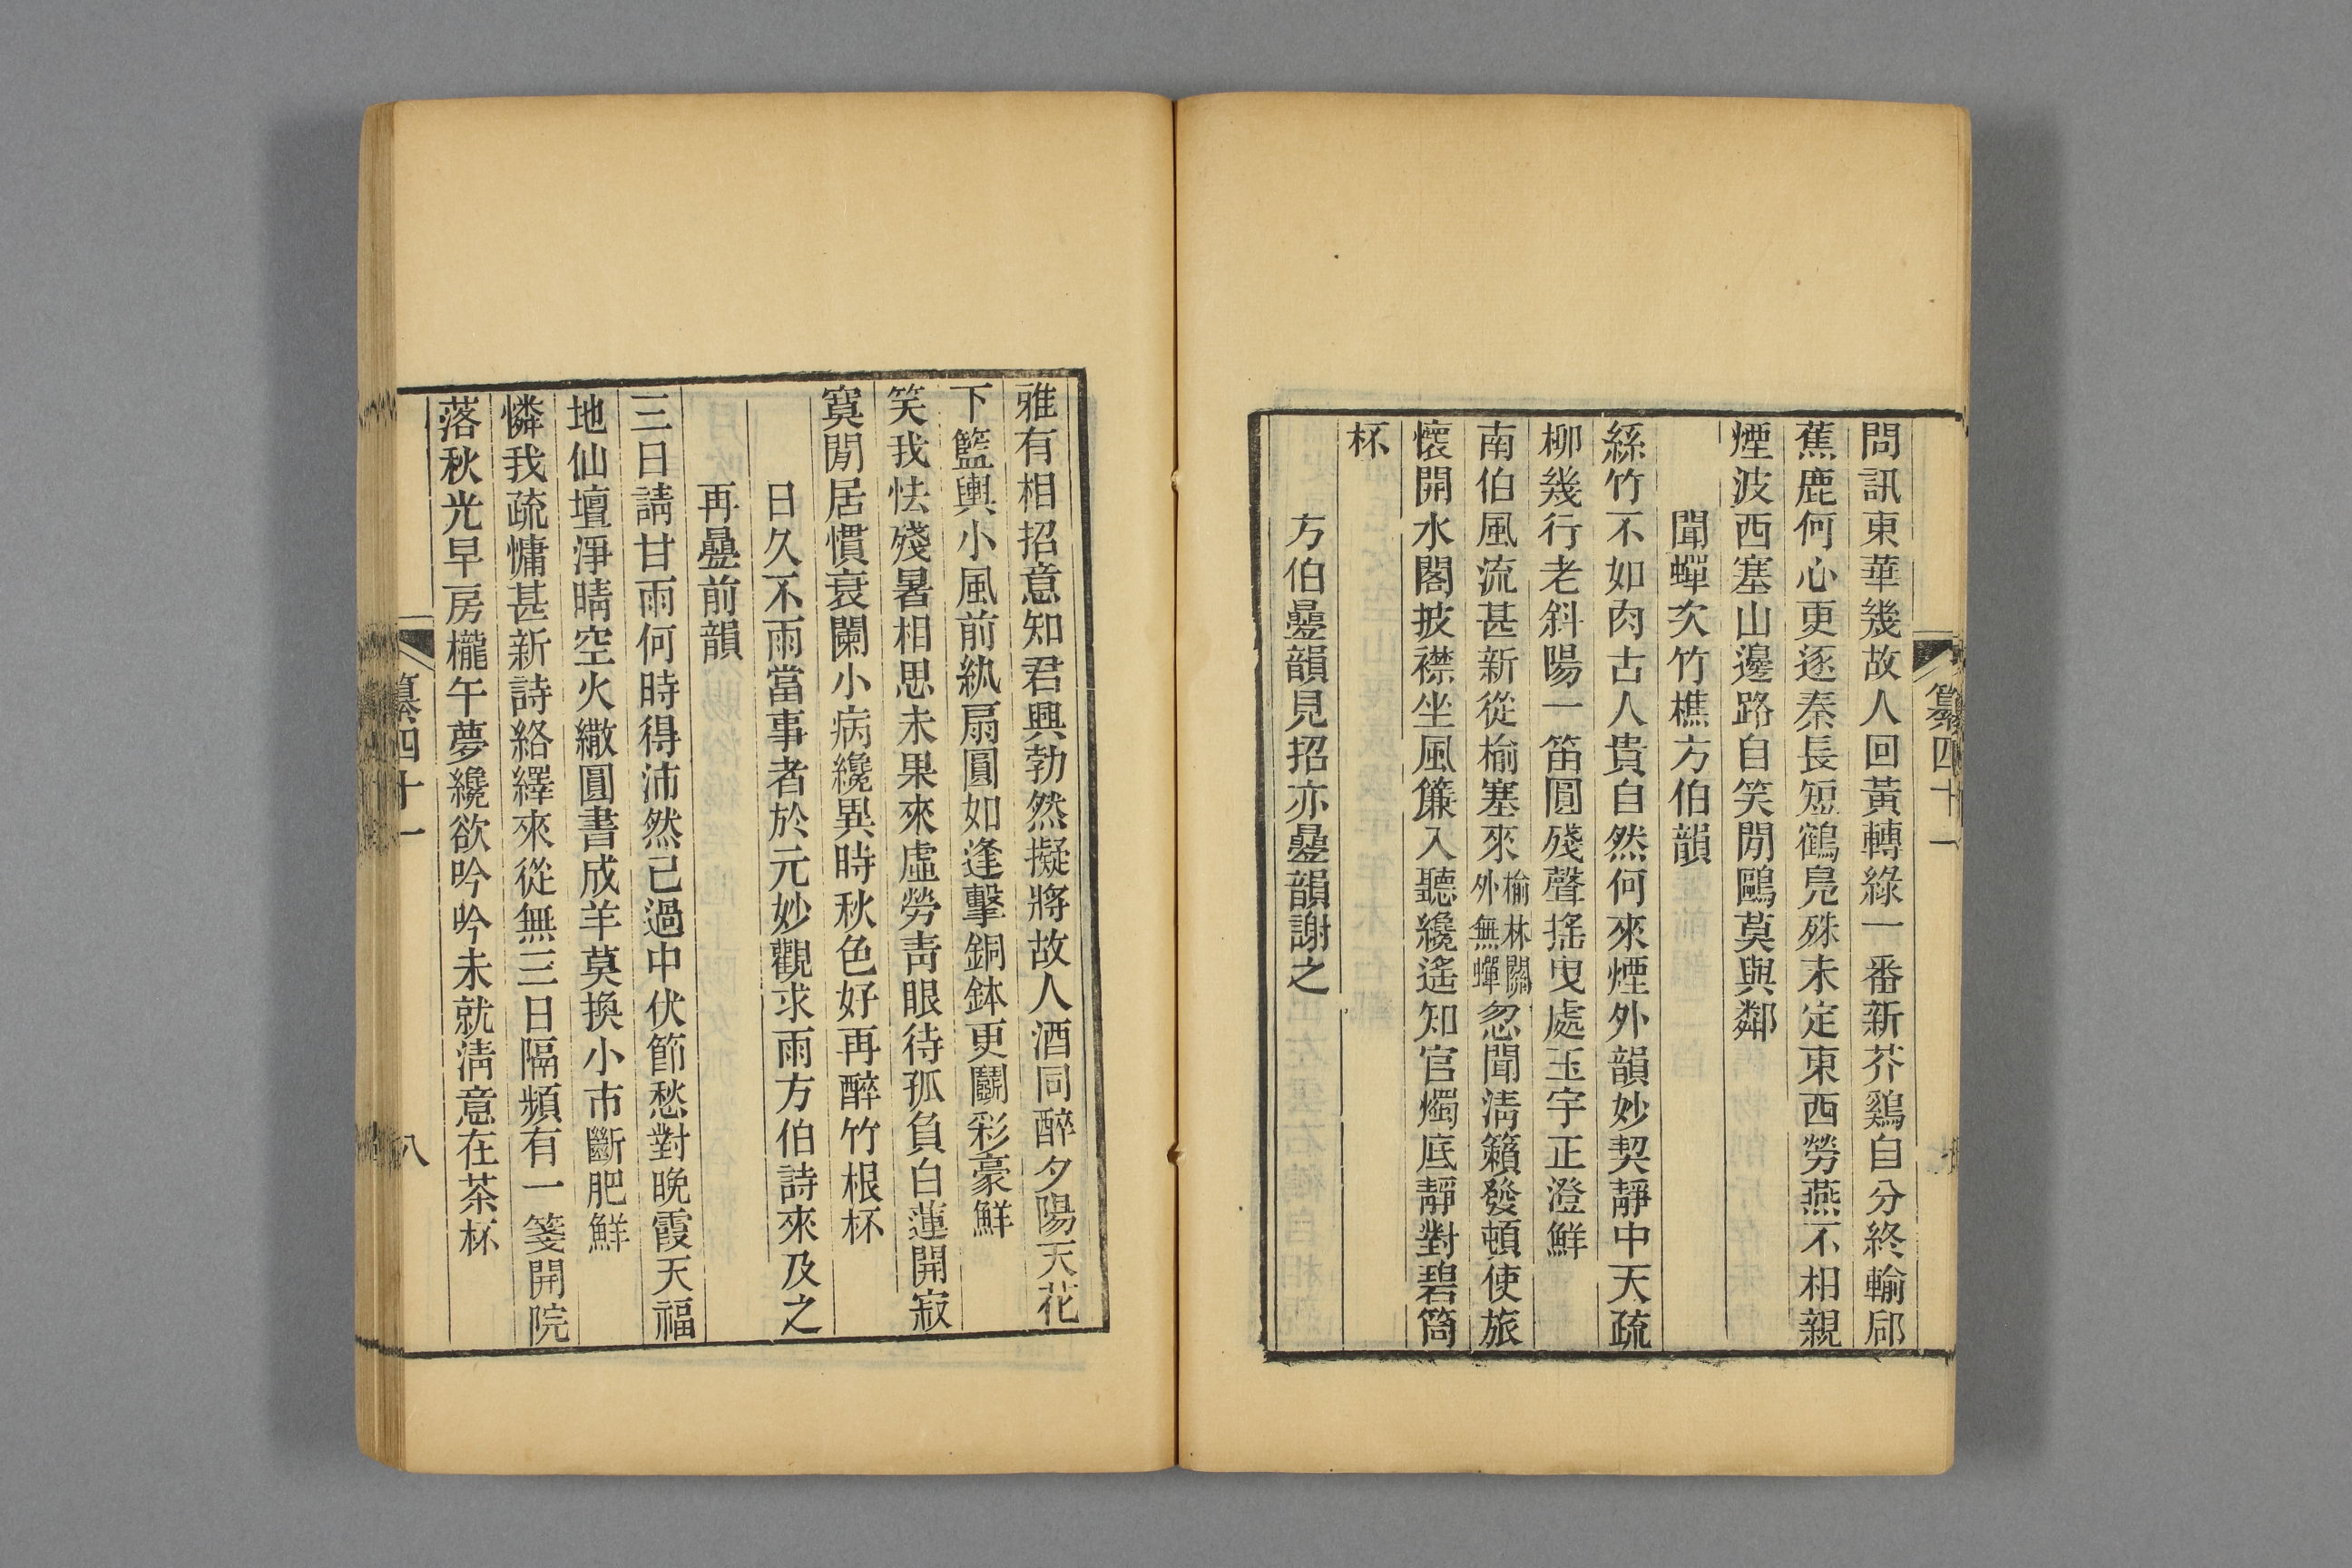 纂四十一
問訊東華幾故人回黃轉綠一番新芥鷄自分終輸郈
蕉鹿何心更逐秦長短鶴鳧殊未定東西勞燕不相親
煙波西塞山邊路自笑閒鷗莫與鄰
聞蟬次竹樵方伯韻
絲竹不如肉古人貴自然何來煙外韻妙契靜中天疏
柳幾行老斜陽一笛圓殘聲搖曳處玉宇正澄鮮
南伯風流甚新從榆塞來榆林關外無蟬忽聞淸籟發頓使旅
懷開水閣披襟坐風簾入聽纔遙知官燭底靜對碧筩
杯
方伯疊韻見招亦疊韻謝之
雅有相招意知君興勃然擬將故人酒同醉夕陽天花
下籃輿小風前紈扇圓如逢擊銅鉢更鬬彩豪鮮
笑我怯殘暑相思未果來虛勞靑眼待孤負白蓮開寂
寞閒居慣衰闌小病纔異時秋色好再醉竹根杯
日久不雨當事者於元妙觀求雨方伯詩來及之
再疊前韻
三日請甘雨何時得沛然已過中伏節愁對晚霞天福
地仙壇淨晴空火繖圓書成羊莫換小市斷肥鮮
憐我疏慵甚新詩絡繹來從無三日隔頻有一箋開院
落秋光早房櫳午夢纔欲吟吟未就淸意在茶杯
纂四十一
八